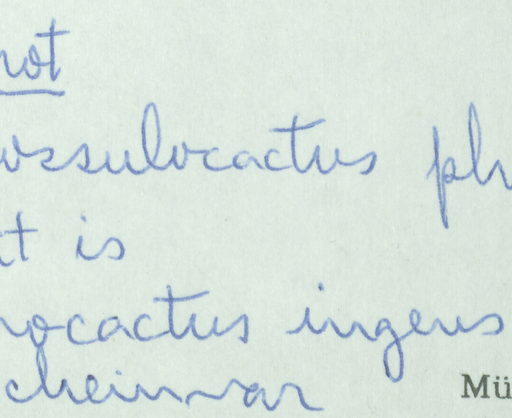 not
ossulocactus ph
t is
nocactus ingens
cheinvar
Mü